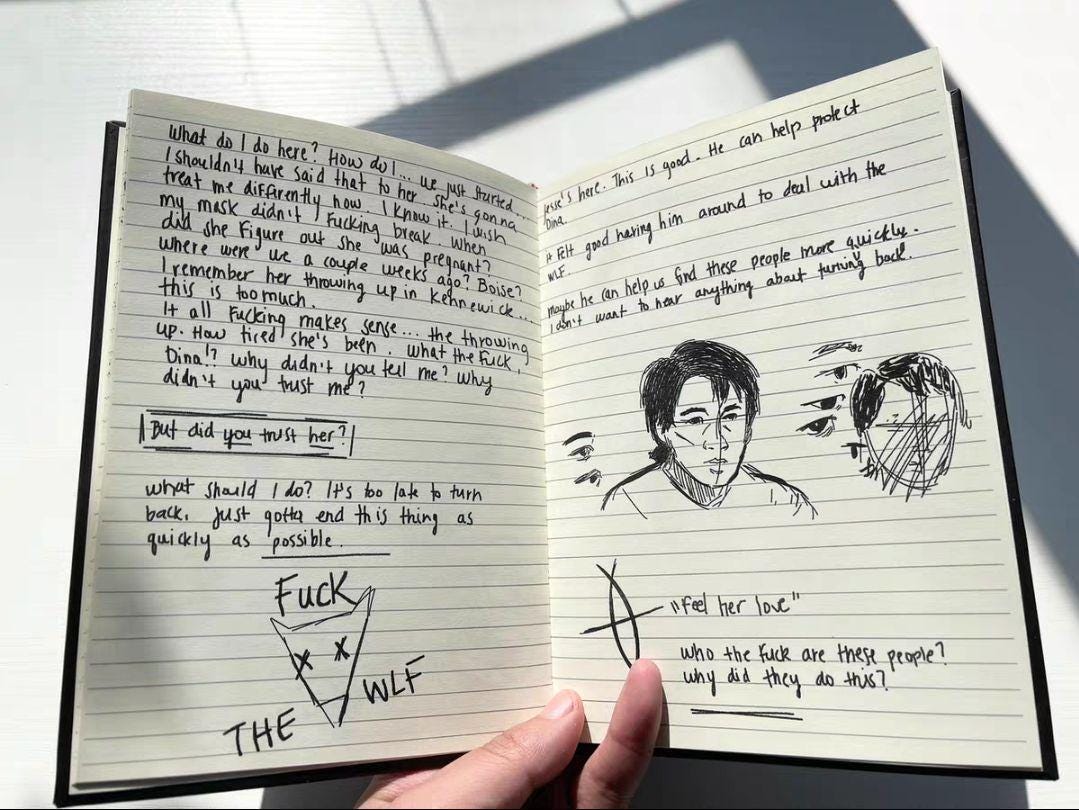 What do I do here? How do I... we just started...
I shouldn't have said that to her she's gonna
treat me differently now. I know it. I wish
my mask didn't fucking break. When
did she figure out she was pregnant?
where were we a couple weeks ago? Boise?
I remember her throwing up in Kennewick...
this is too much.
It all fucking makes sense... the throwing
up. How tired she's been. What the fuck,
Dina!? Why didn't you tell me? Why
didn't you trust me?
But did you trust her?
What should I do? It's too late to turn
back. Just gotta end this thing as
quickly as possible.
Fuck
THE WLF
Jesse's here. This is good. He can help protect
Dina.
It felt good having him around to deal with the
WLF.
Maybe he can help us find these people more quickly.
I don't want to hear anything about turning back.
"Feel her love"
Who the fuck are these people?
Why did they do this?